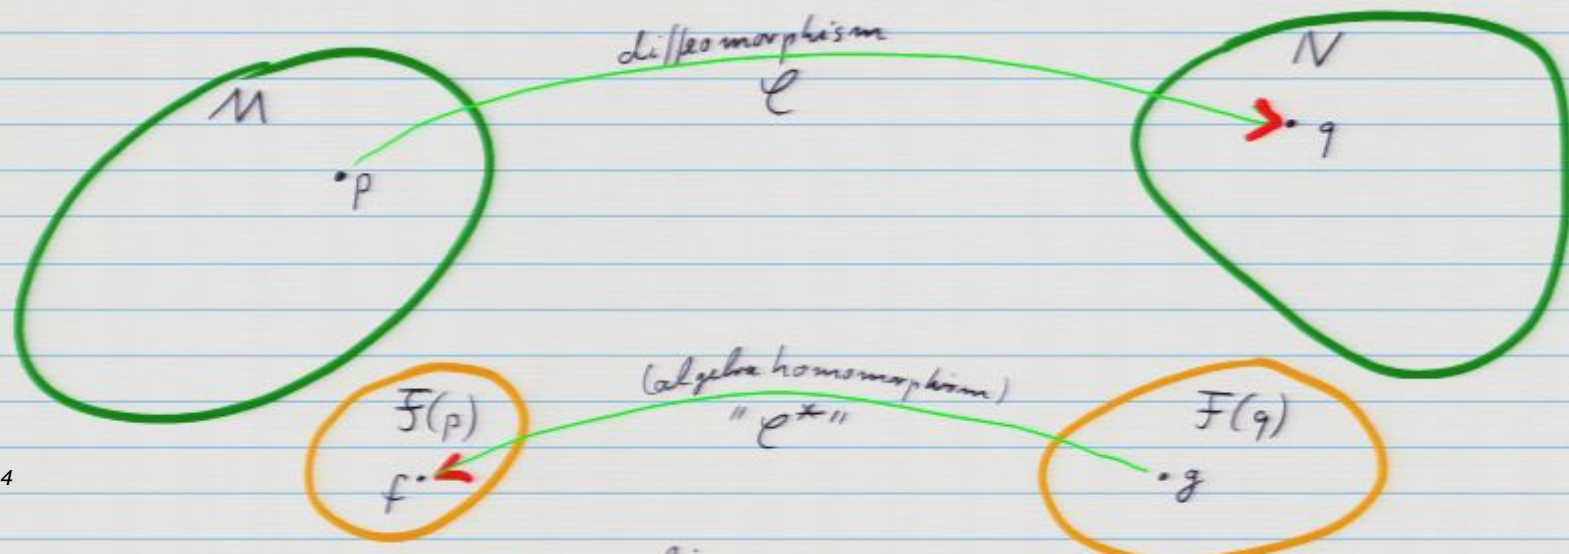 diffeomorphism
φ
M
N
•p
• q
(algebra homomorphism)
"φ*"
F(p)
F(q)
f•
• g
4